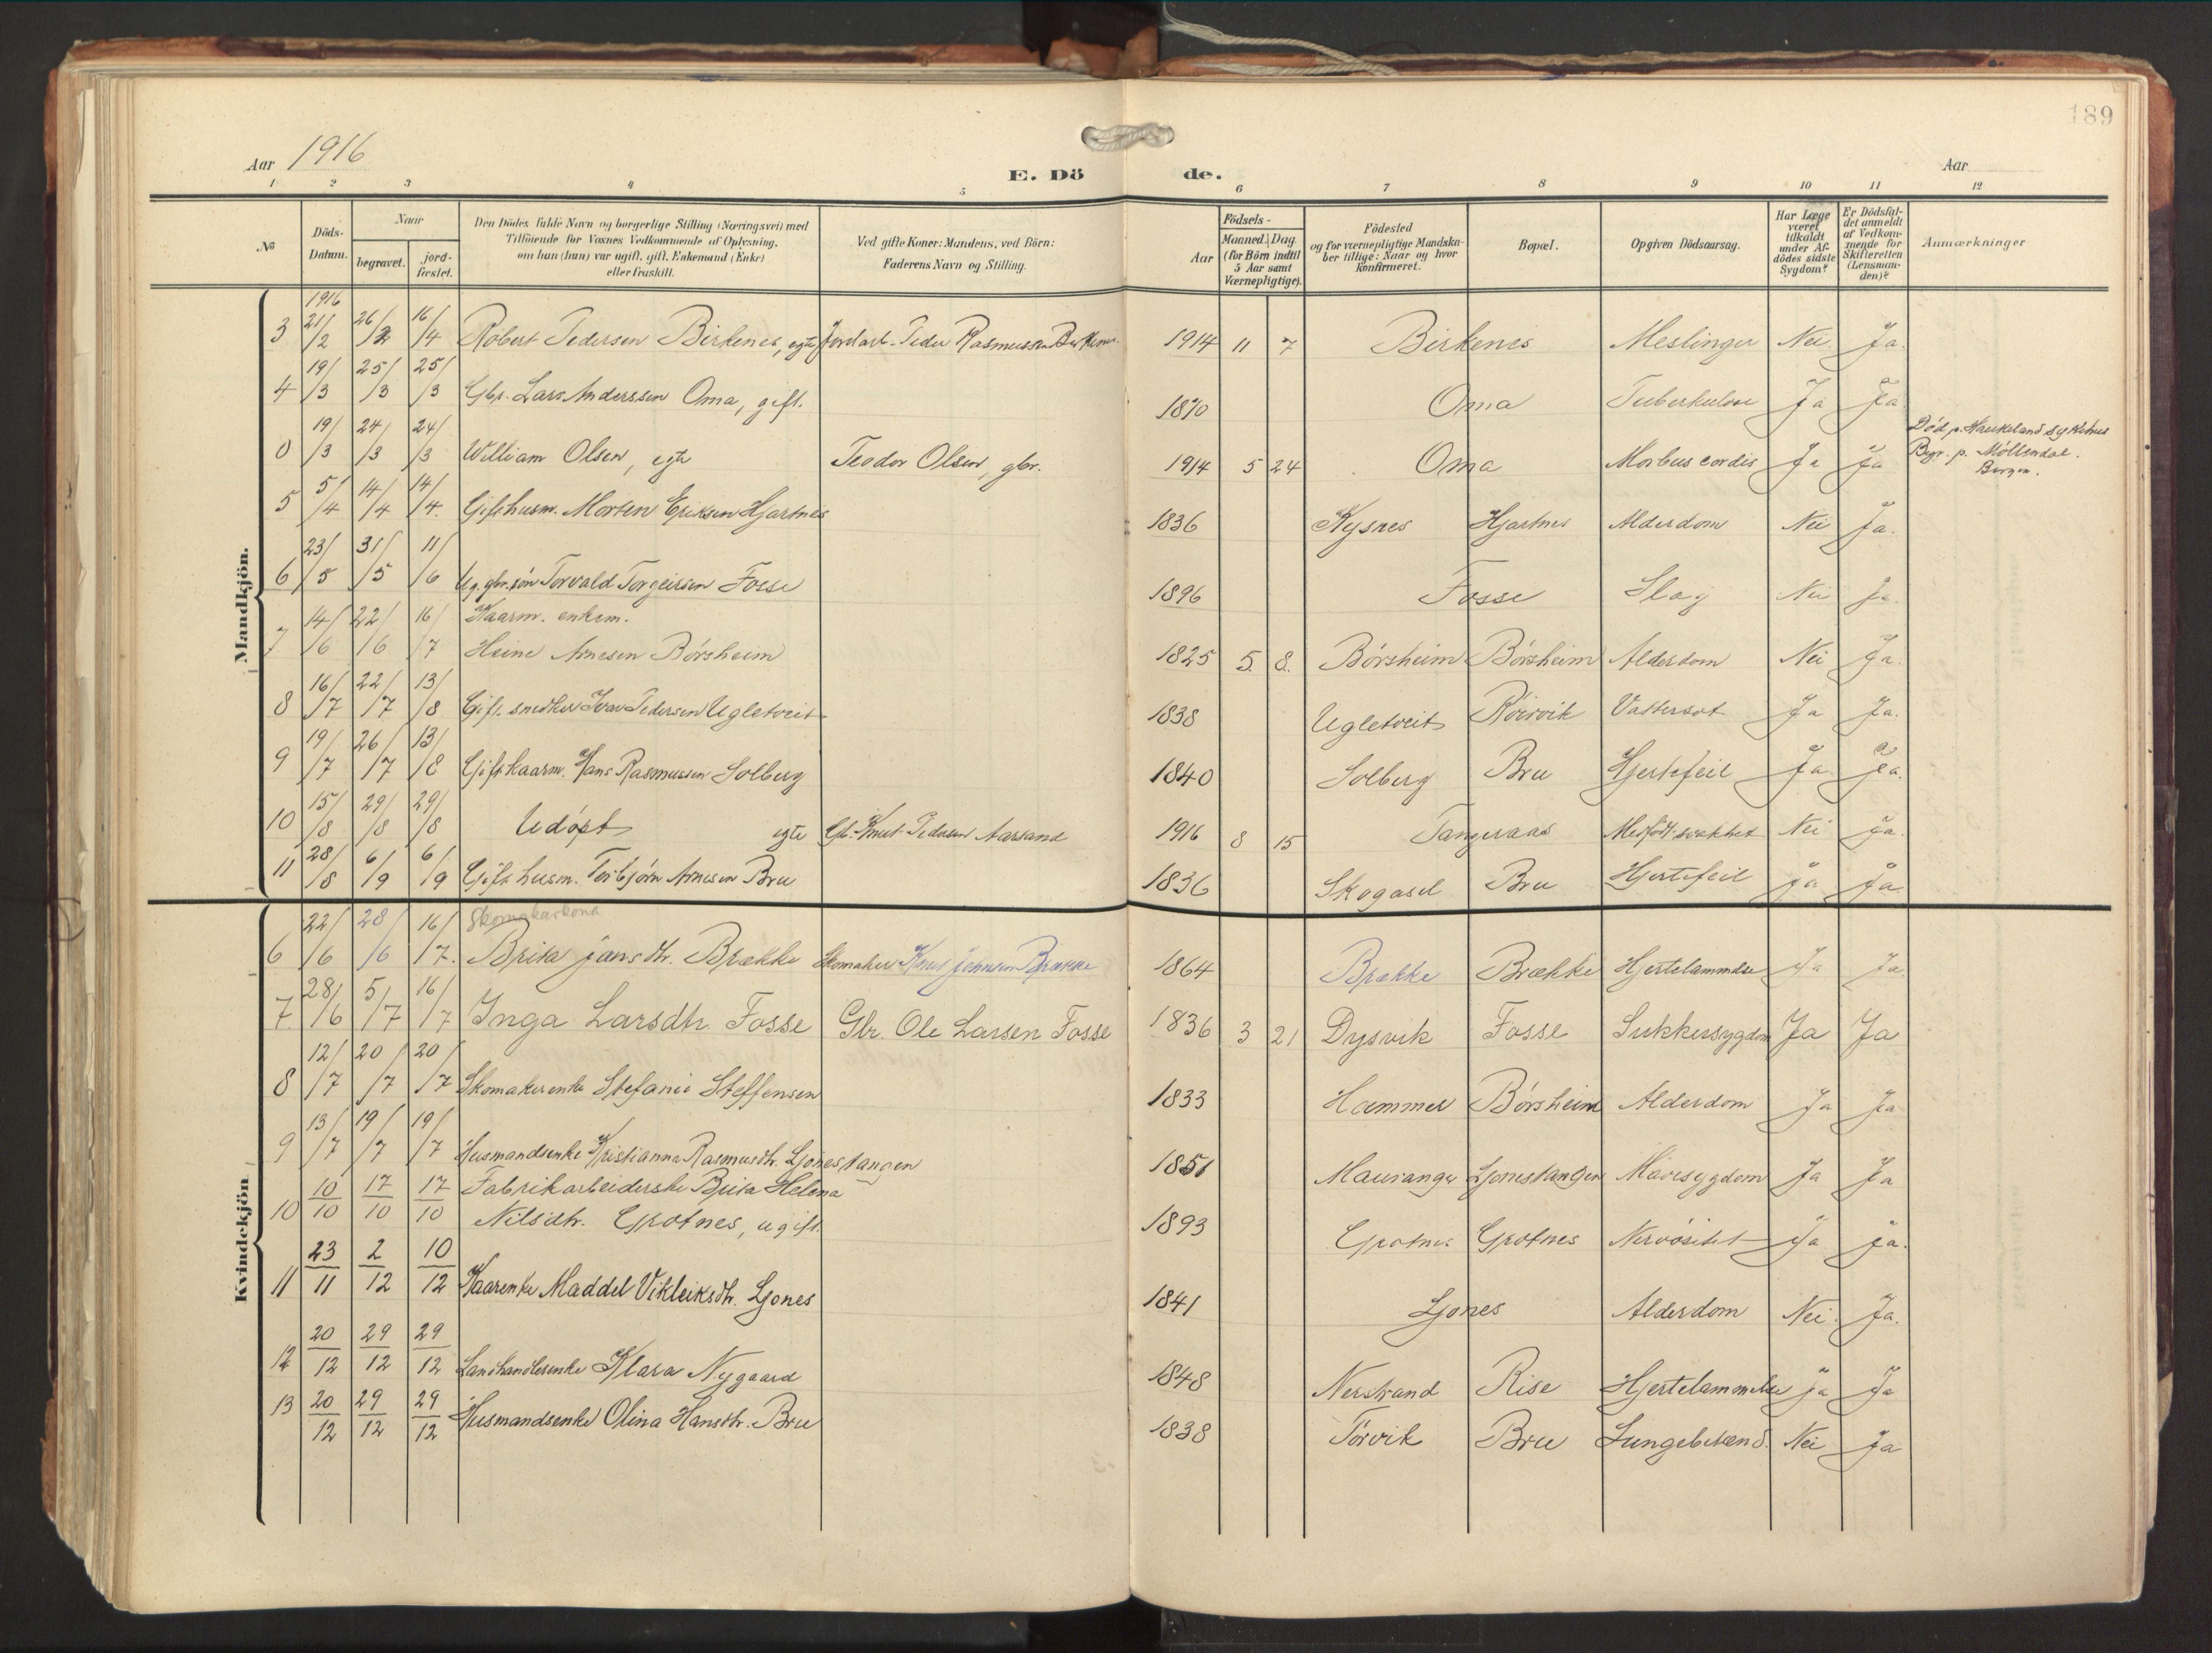 189
Aar 1916
E. Dö de.
Aar
1 2 3 4 5 6 7 8 9 10 11 12
No
Döds-Datum.
Naar
begravet.
jord-fæstet.
Den Dödes fulde Navn og borgerlige Stilling (Næringsvei) med
Tilföiende for Voxnes Vedkommende af Oplysning,
om han (hun) var ugift, gift, Enkemand (Enke)
eller fraskilt.
Ved gifte Koner: Mandens, ved Börn:
Faderens Navn og Stilling.
Födsels-
Aar
Maaned. Dag
(for Börn indtil
5 Aar samt
Værnepligtige).
Födested
og for værnepligtige Mandska-
ber tillige: Naar og hvor
konfirmeret.
Bopæl.
Opgiven Dödsaarsag.
Har Læge
været
tilkaldt
under Af-
dödes sidste
Sygdom?
Er Dödsfal-
det anmeldt
af Vedkom-
mende for
Skifteretten
(Lensman-
den)?
Anmærkninger
Mandkjön.
1916
3 21/2 26/2 16/4 Robert Pedersen Birkenes, egte Jordarb. Peder Rasmussen Birkenes 1914 11 7 Birkenes Meslinger Nei Ja.
4 19/3 25/3 25/3 Gbr. Lars Anderssen Oma, gift. 1870 Oma Tuberkulose Ja Ja
0 19/3 24/3 24/3 William Olsen, egte Teodor Olsen, gbr. 1914 5 24 Oma Morbus cordis Ja Ja Död p. Haukeland sykehus
Begr. p. Möllendal.
Bergen.
5 5/4 14/4 14/4. Gift husm. Morten Eriksen Hjartnes 1836 Kysnes Hjartnes Alderdom Nei Ja.
6 23/5 31/5 11/6 Ug. gbr.sön Torvald Torgeirsen Fosse 1896 Fosse Slag Nei Ja.
7 14/6 22/6 16/7 Kaarm. enkem.
Heine Arnesen Börsheim 1825 5. 8. Börsheim Börsheim Alderdom Nei Ja.
8 16/7 22/7 13/8 Gift snedker Ivar Pedersen Ugletveit 1838 Ugletveit Röirvik Vattersot Ja Ja.
9 19/7 26/7 13/8 Gift kaarm. Hans Rasmussen Solberg 1840 Solberg Bru Hjertefeil Ja Ja.
10 15/8 29/8 29/8 Udöpt egte Gbr. Knut Pedersen Aarsand 1916 8 15 Tangeraas Medfödt svakhet Nei Ja.
11 28/8 6/9 6/9 Gift husm. Torbjørn Arnesen Bru 1836 Skogasel Bru Hjertefeil Ja Ja
Kvindekjön.
Skomakarkona
6 22/6 28/6 16/7. Brita Jansdtr. Brække Skomaker Knut Johnsen Brække 1864 Brække Brække Hjertelammelse Ja Ja
7 28/6 5/7 16/7 Inga Larsdtr. Fosse Gbr. Ole Larsen Fosse 1836 3 21 Dysvik Fosse Sukkersygdom Ja Ja
8 12/7 20/7 20/7 Skomakerenke Stefanie Steffensen 1833 Hammer Börsheim Alderdom Ja Ja
9 13/7 19/7 19/7 Husmandsenke Kristianna Rasmusdtr. Ljonestangen 1851 Mauranger Ljonestangen Mavesygdom Ja Ja
10 10/10 17/10 17/10 Fabrikarbeiderske Brita Helena
Nilsdtr. Grotnes, ugift. 1893 Grotnes Grotnes Nervösitet Ja Ja.
11 23/11 2/12 10/12 Kaarenke Maddel Vikleiksdtr. Ljones 1841 Ljones Alderdom Nei. Ja.
12 20/12 29/12 29/12 Landhandlerenke Klara Nygaard 1848 Nerstrand Rise Hjertelammelse Ja Ja
13 20/12 29/12 29/12 Husmandsenke Olina Hansdtr. Bru 1838 Törvik Bru Lungebetænd. Nei Ja